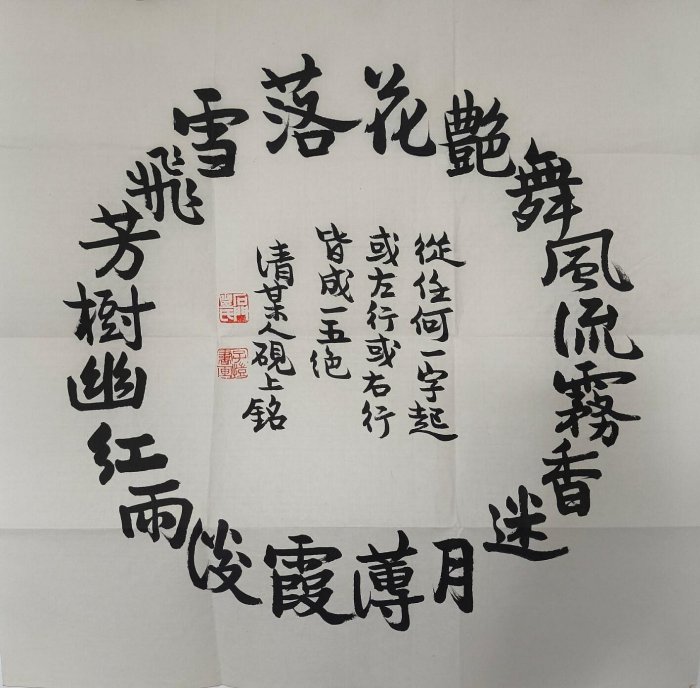 落花艶舞風流霧香迷月薄霞淡雨紅幽樹芳飛雪
從任何一字起
或左行或右行
皆成一五绝
清某人硯上銘